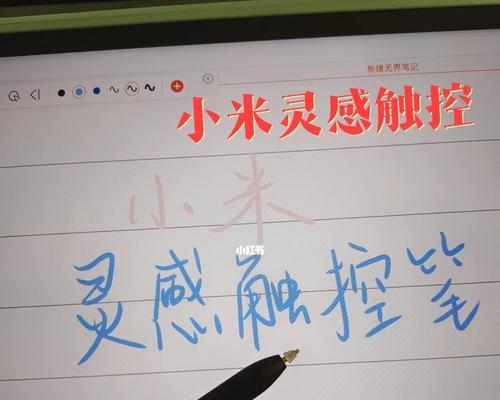 新建无界笔记
小米灵感触控
小米
小红书
灵感触控笔